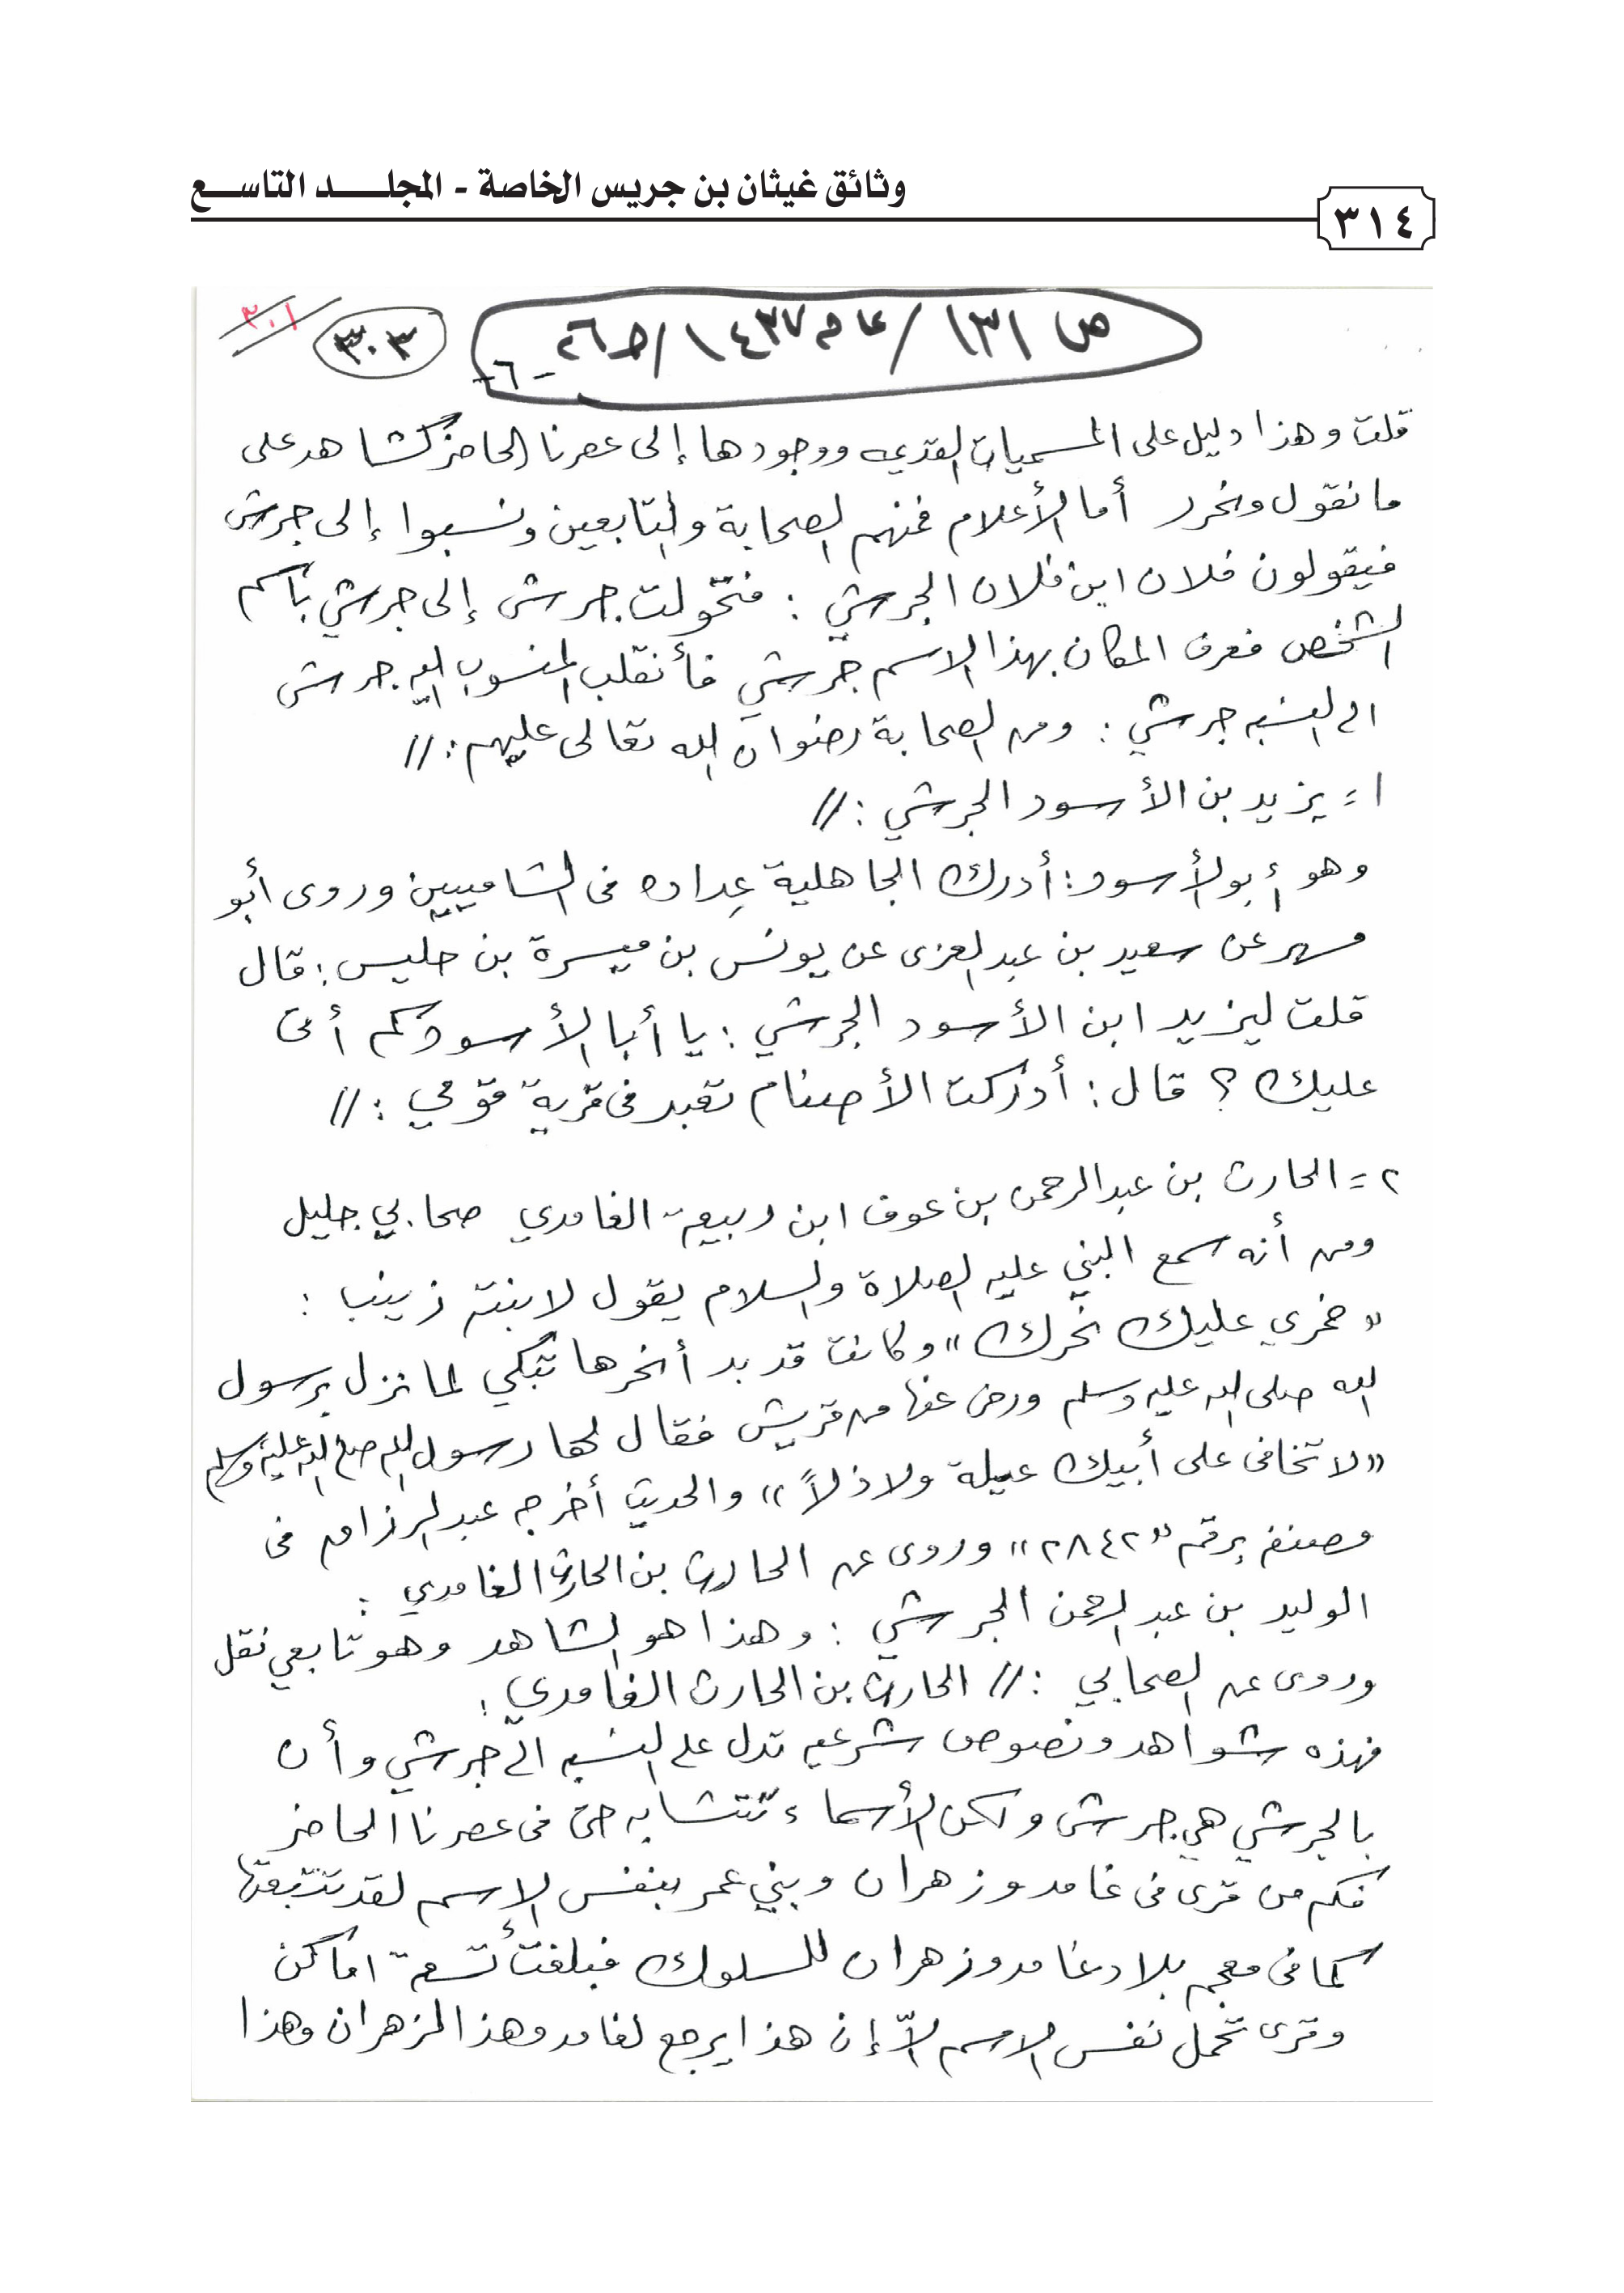 وثائق غيثان بن جريس الخاصة - المجلـــد التاســع
٣١٤
ص ١٣١ / عام ١٤٣٧ / ٢٦
-٦-
٣٠٣
٣٠١
قلت وهذا دليل على المسميات القديمه ووجودها إلى عصرنا الحاضر كشاهد على
ما نقول ونحرر أما الأعلام فمنهم الصحابة والتابعين ونسبوا إلى جرش
فيقولون فلان ابن فلان الجرشي : فتحولت جرش إلى جرشي باسم
الشخص فعرف المكان بهذا الاسم جرشي فأنقلب المنسوب اليه جرش
الى النسبه جرشي : ومن الصحابة رضوان الله تعالى عليهم : //
١ = يزيد بن الأسود الجرشي : //
وهو أبو الأسود : أدرك الجاهلية عِداده في الشاميين وروى أبو
مسهر عن سعيد بن عبدالعزى عن يونس بن ميسرة بن حليس : قال
قلت ليزيد ابن الأسود الجرشي : يا أبا الأسود كم أتى
عليك ؟ قال : أدركت الأصنام تعبد في قرية قومي : //
٢ = الحارث بن عبدالرحمن بن عوف ابن ربيعة الغامدي صحابي جليل
ومن أنه سمع النبي عليه الصلاة والسلام يقول لابنته زينب :
« خمري عليك نحرك » وكانت قد بد أنحرها تبكي لما نزل برسول
الله صلى الله عليه وسلم ورضى عنها من قريش فقال لها رسول الله صلى الله عليه وسلم
« لا تخافى على أبيك عيلة ولا ذلاً » والحديث أخرجه عبدالرزاق في
مصنفه برقم « ٢٨٤٢ » وروى عن الحارث بن الحارث الغامدي :
الوليد بن عبدالرحمن الجرشي : وهذا هو الشاهد وهو تابعي نقل
وروى عن الصحابي : // الحارث بن الحارث الغامدي :
فهذه شواهد ونصوص شرعيه تدل على النسبه الى جرشي وأن
بالجرشي هي جرش ولكن الأسماء تتشابه حتى في عصرنا الحاضر
فكم من قرى في غامد وزهران وبني عمر بنفس الاسم لقد تتبعتها
كما في معجم بلاد غامد وزهران للسلوك فبلغت تسعة اماكن
وقرى تحمل نفس الاسم الاّ إن هذا يرجع لغامد وهذا لزهران وهذا